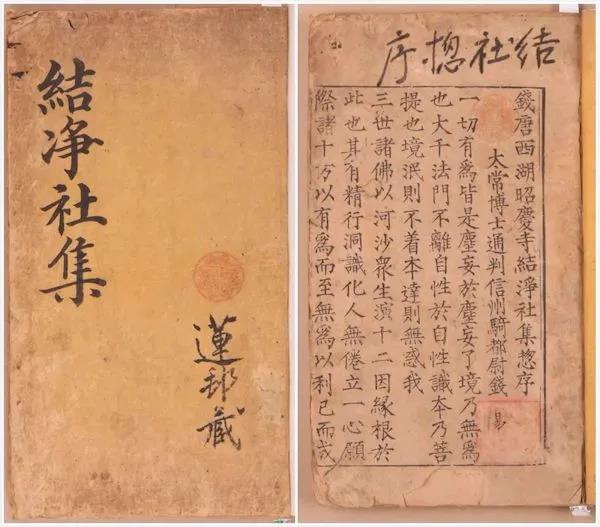 結淨社集
蓮邦藏
结社揔序
錢唐西湖昭慶寺結淨社集揔序
太常博士通判信州騎都尉錢易
一切有爲皆是塵妄於塵妄了境乃無爲
也大千法門不離自性於自性識本乃菩
提也境泯則不着本達則無惑我
三世諸佛以河沙衆生演十二因緣根於
此也其有精行洞識化人無倦立一心願
際諸十方以有爲而至無爲以利已而或